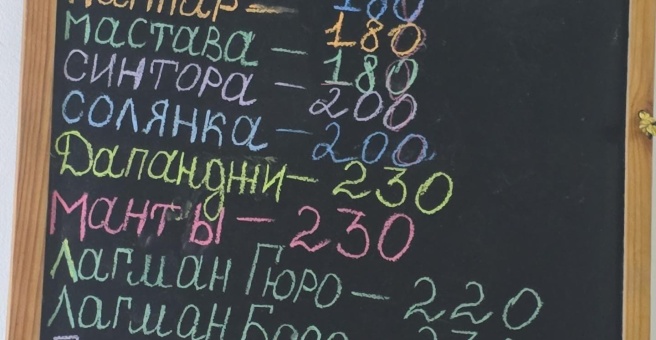 180
мастава — 180
синтора — 180
солянка — 200
Дапанджи — 230
манты — 230
Лагман Гюро — 220
Лагман